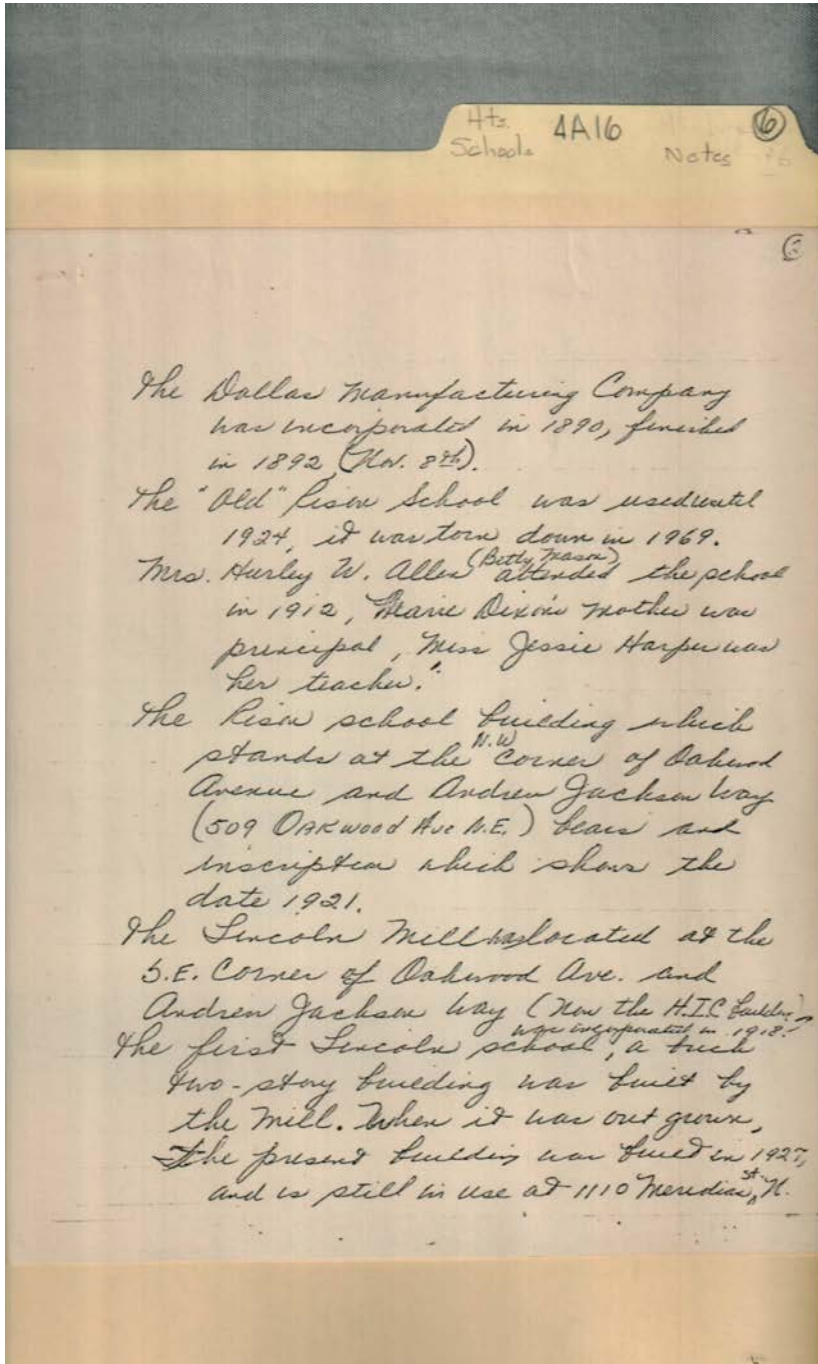 Hts. 4A16 6
Schools Notes
3
The Dallas Manufacturing Company
was incorporated in 1890, finished
in 1892 (Nov. 8th).
The "Old" Rison School was used until
1924, it was torn down in 1969.
(Betty Mason)
Mrs. Hurley W. Allen attended the school
in 1912, Marie Dixon's Mother was
principal, Miss Jessie Harper was
her teacher."
The Rison school building which
N.W
stands at the corner of Oakwood
Avenue and Andrew Jackson Way
(509 OAKwood Ave N.E.) bears and
inscription which shows the
date 1921.
The Lincoln Mill was located at the
S.E. Corner of Oakwood Ave. and
Andrew Jackson Way (Now the H.I.C building)
was incorporated in 1918.
The first Lincoln school, a brick
two-story building was built by
the Mill. When it was out grown,
The present building was built in 1927,
and is still in use at 1110 Meridian St. N.